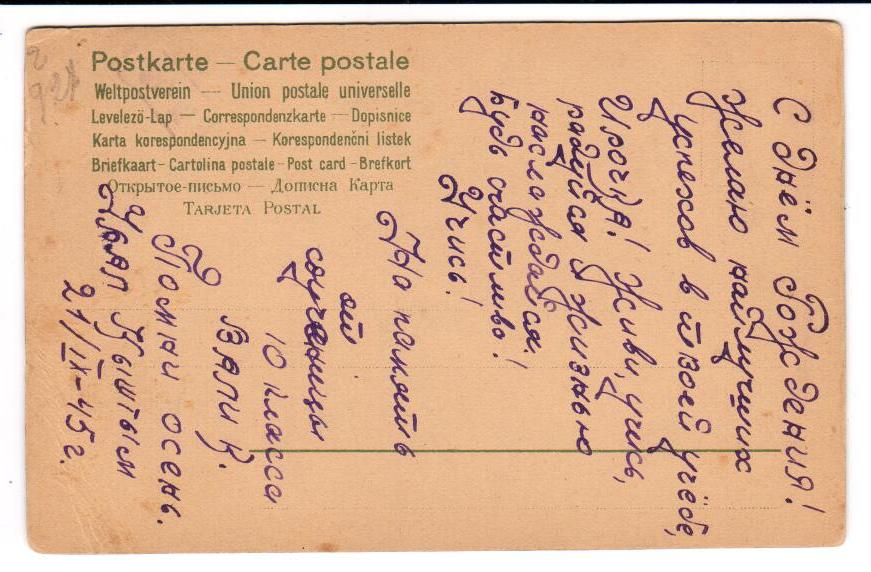 Postkarte — Carte postale
Weltpostverein — Union postale universelle
Levelező-Lap — Correspondenzkarte — Dopisnice
Karta korespondencyjna — Korespondenční listek
Briefkaart - Cartolina postale - Post card - Brefkort
Открытое-письмо — Дописна Карта
Tarjeta Postal
С днём Рождения!
Желаю наилучших
успехов в твоей учёбе,
Ирочка! Живи, учись,
радуйся и жизнью
наслаждайся.
Будь счастливо!
Учись!
На память
от
соученицы
10 класса
Вали К.
Помни осень.
Кыштым
21/IX-45 г.